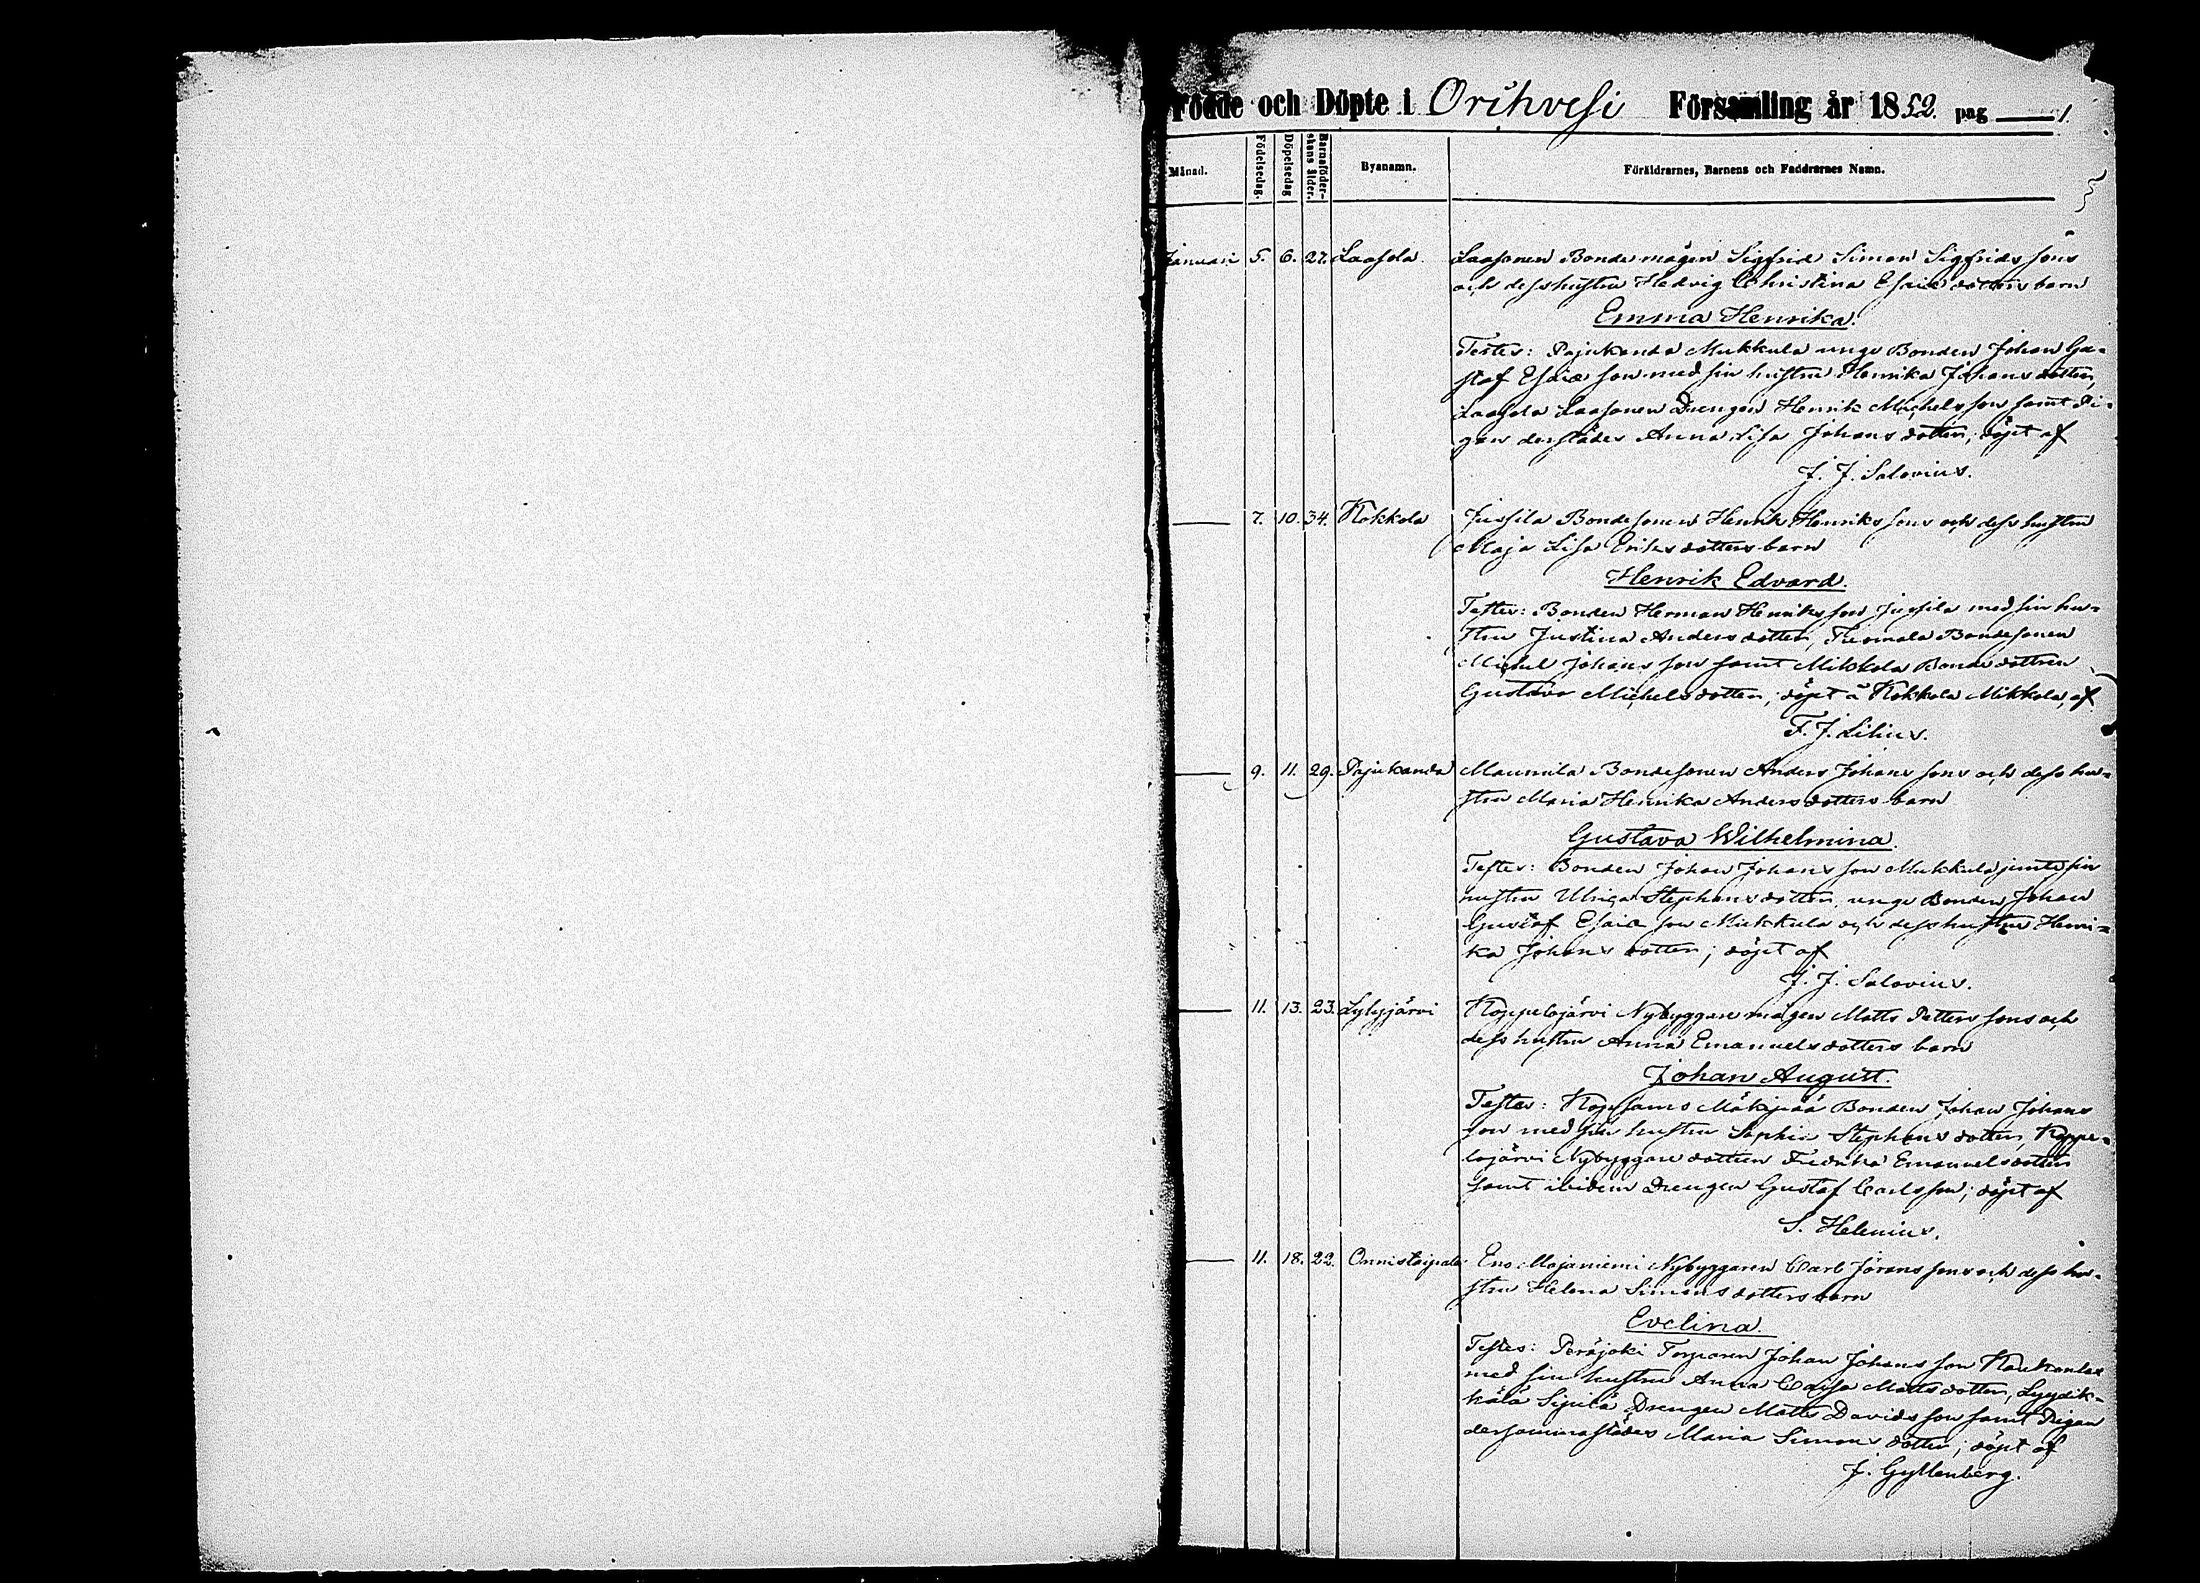 Födde och Döpte i Orihvesi Församling år 1852. pag 1.
Månad. Födelsedag. Döpelsedag Barnaföderskans ålder. Byanamn. Föräldrarnes, Barnens och Faddrarnes Namn.
Januari 5. 6. 27. Laasola. Laasonen Bonde mågen Sigfrid Simon Sigfrids sons
och dess hustru Hedvig Christina Esaiæ dotters barn
Emma Henrika.
Testes: Pajukanda Mukkula unge Bonden Johan Gu=
staf Esaiæ son med sin hustru Henrika Johans dotter,
Laasola Laasonen Drengen Henrik Michels son samt Pi=
gan derstädes Anna Lisa Johans dotter; döpt af
J. J. Salovius.
— 7. 10. 34. Kokkola Jussila Bondesonen Henrik Henriks sons och dess hustru
Maja Lisa Eriks dotters barn
Henrik Edvard.
Testes: Bonden Herman Henriks son Jussila med sin hu=
stru Justina Anders dotter, Bondesonen
Michel Johans son samt Mikkola Bonde dottren
Gustava Michels dotter; döpt å Kokkola Mikkola, af
F. J. Lilius.
— 9. 11. 29. Pajukanda Maunula Bondesonen Anders Johans sons och dess hu=
stru Maria Henrika Anders dotters barn
Gustava Wilhelmina.
Testes: Bonden Johan Johans son Mukkula jemte sin
hustru Ulrica Stephans dotter, unge Bonden Johan
Gustaf Esaiæ son Mukkula och dess hustru Henri=
ka Johans dotter; döpt af
J. J. Salovius.
— 11. 13. 23. Lyhyjärvi Koppelojärvi Nybyggare mågen Matts Petters sons och
dess hustru Anna Emanuels dotters barn
Johan August.
Testes: Kopsamo Mäkipää Bonden Johan Johans
son med sin hustru Sophia Stephans dotter, Koppe=
lojärvi Nybyggare dottren Fredrika Emanuels dotter
samt ibidem Drengen Gustaf Carls son; döpt af
S. Helenius.
— 11. 18. 22. Onnistaipale Eno Majaniemi Nybyggaren Carl Jörans sons och dess hu=
stru Helena Simons dotters barn
Evelina.
Testes: Peräjoki Torparen Johan Johans son
med sin hustru Anna Caisa Matts dotter, Lyydik=
kälä Sipilä Drengen Matts Davids son samt Pigan
dersammastädes Maria Simons dotter; döpt af
J. Gyllenberg.